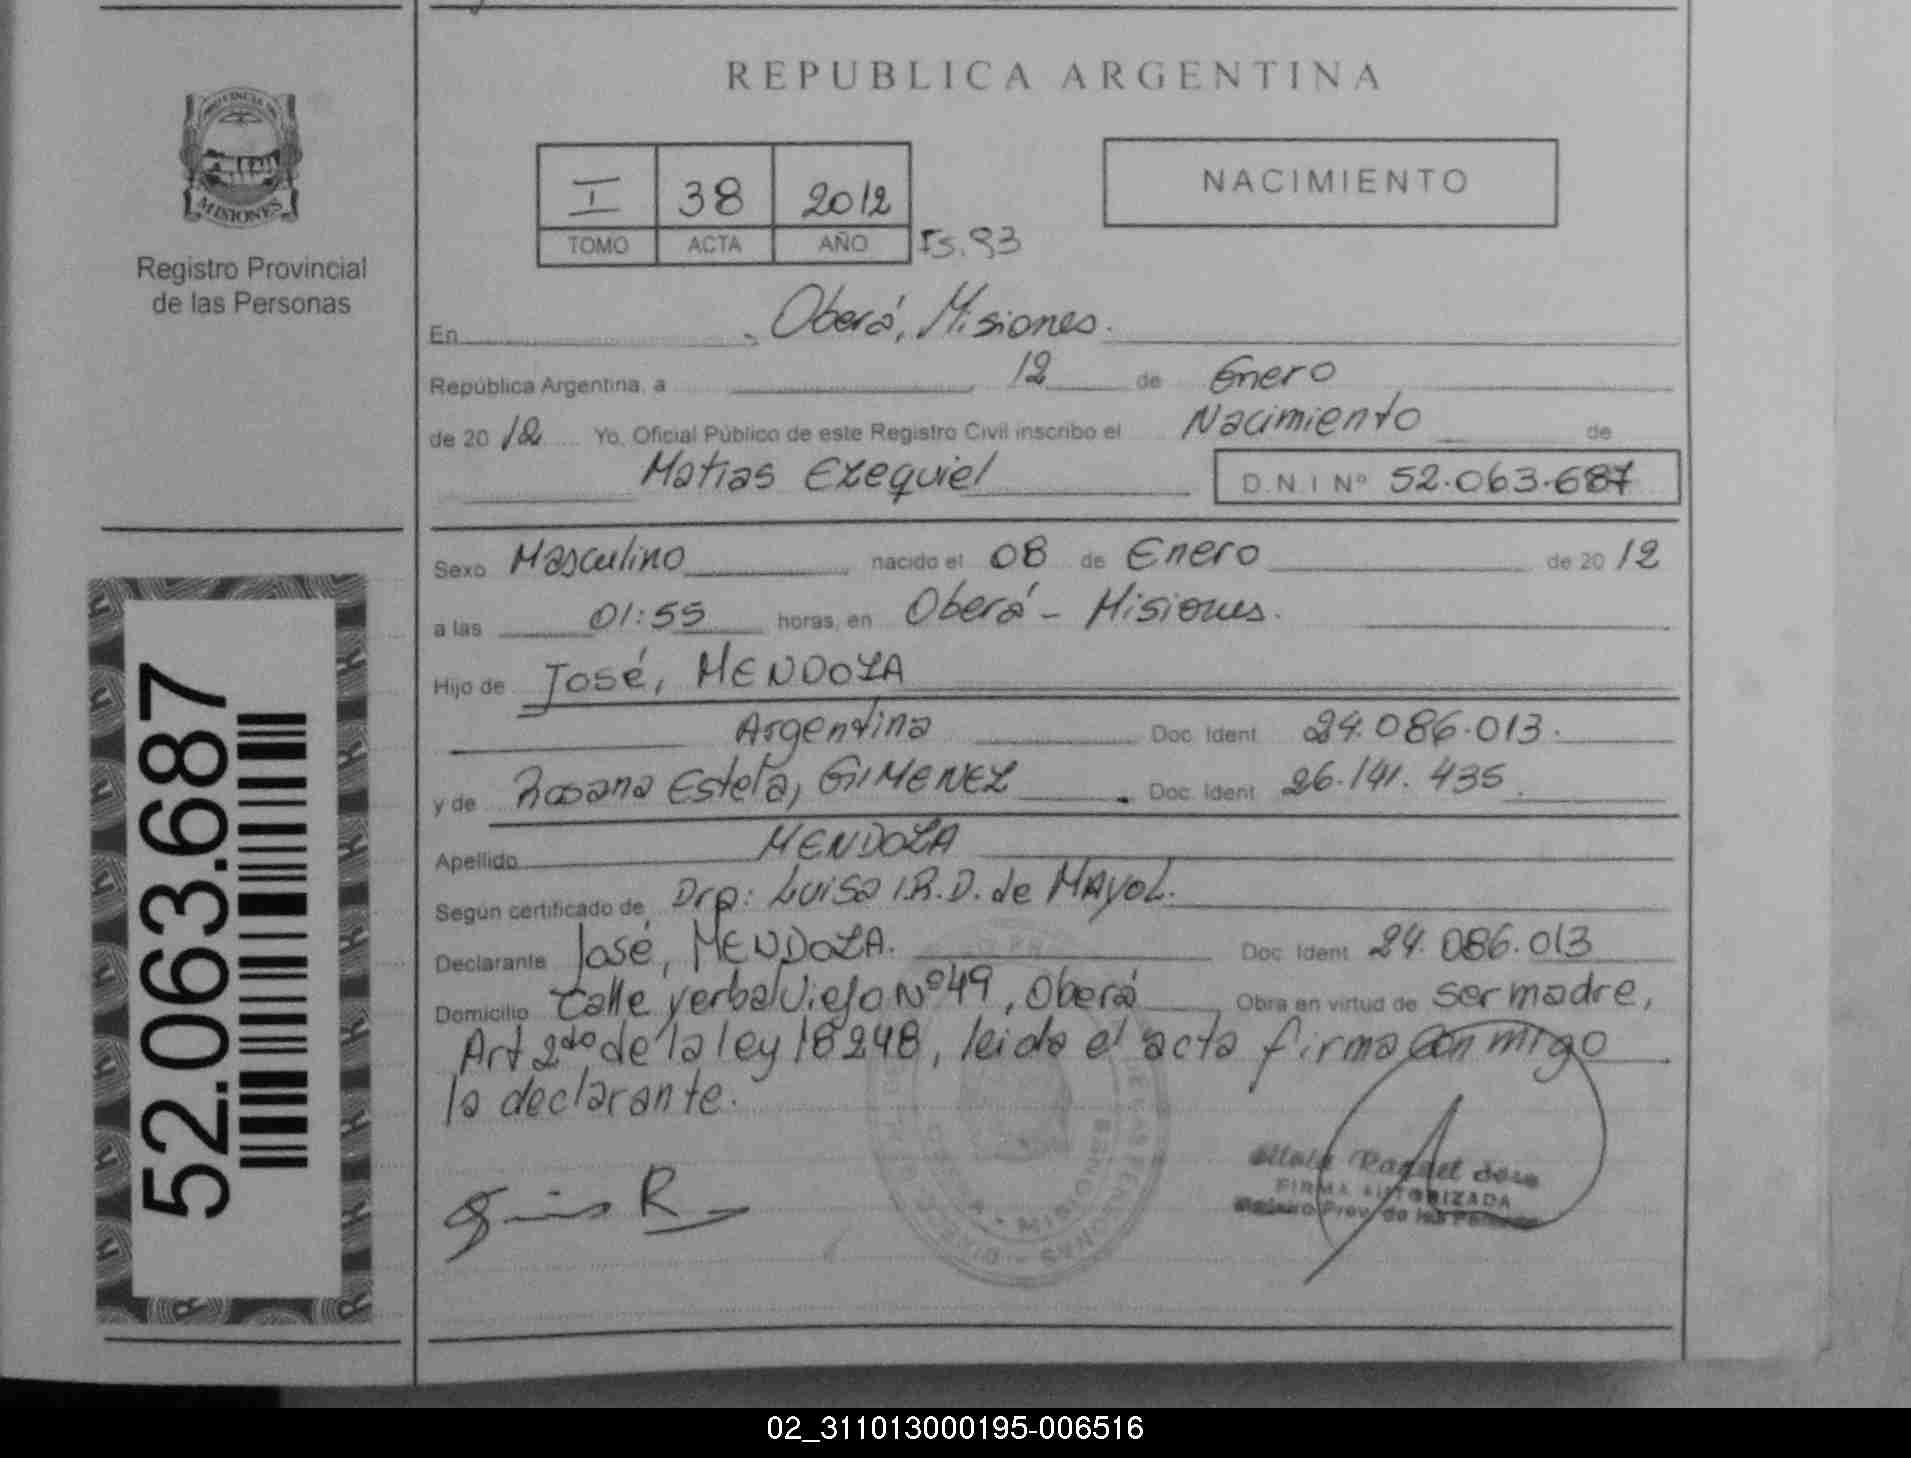 REPUBLICA ARGENTINA
PROVINCIA DE
MISIONES
Registro Provincial
de las Personas
I 38 2012
TOMO ACTA AÑO
Fs. 93
NACIMIENTO
En Oberá, Misiones.
República Argentina, a 12 de Enero
de 2012 Yo, Oficial Público de este Registro Civil inscribo el Nacimiento de
Matias Ezequiel D.N.I Nº 52.063.687
Sexo Masculino nacido el 08 de Enero de 2012
a las 01:55 horas, en Oberá - Misiones.
Hijo de José, MENDOZA
Argentina Doc. Ident 24.086.013.
y de Rosana Estela, GIMENEZ Doc. Ident 26.141.435.
Apellido MENDOZA
Según certificado de Dra: Luisa I.R.D. de MAYOL.
Declarante José, MENDOZA. Doc. Ident 24.086.013
Domicilio Calle yerbal viejo Nº 49, Oberá Obra en virtud de ser madre,
Art 2do de la ley 18248, leida el acta firma con migo
la declarante.
R
Rafael Jose
FIRMA AUTORIZADA
Registro Prov. de las Personas
MISIONES
52.063.687
02_311013000195-006516